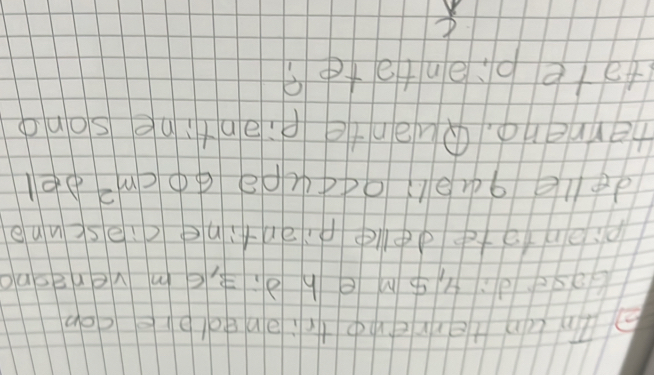 In un terreno triangolare con
base di 4,5 m e h di 3,6 m vengono
piantate delle piantine ciascuna
delle quali occupa 60 cm² del
terreno. Quante piantine sono
state piantate?